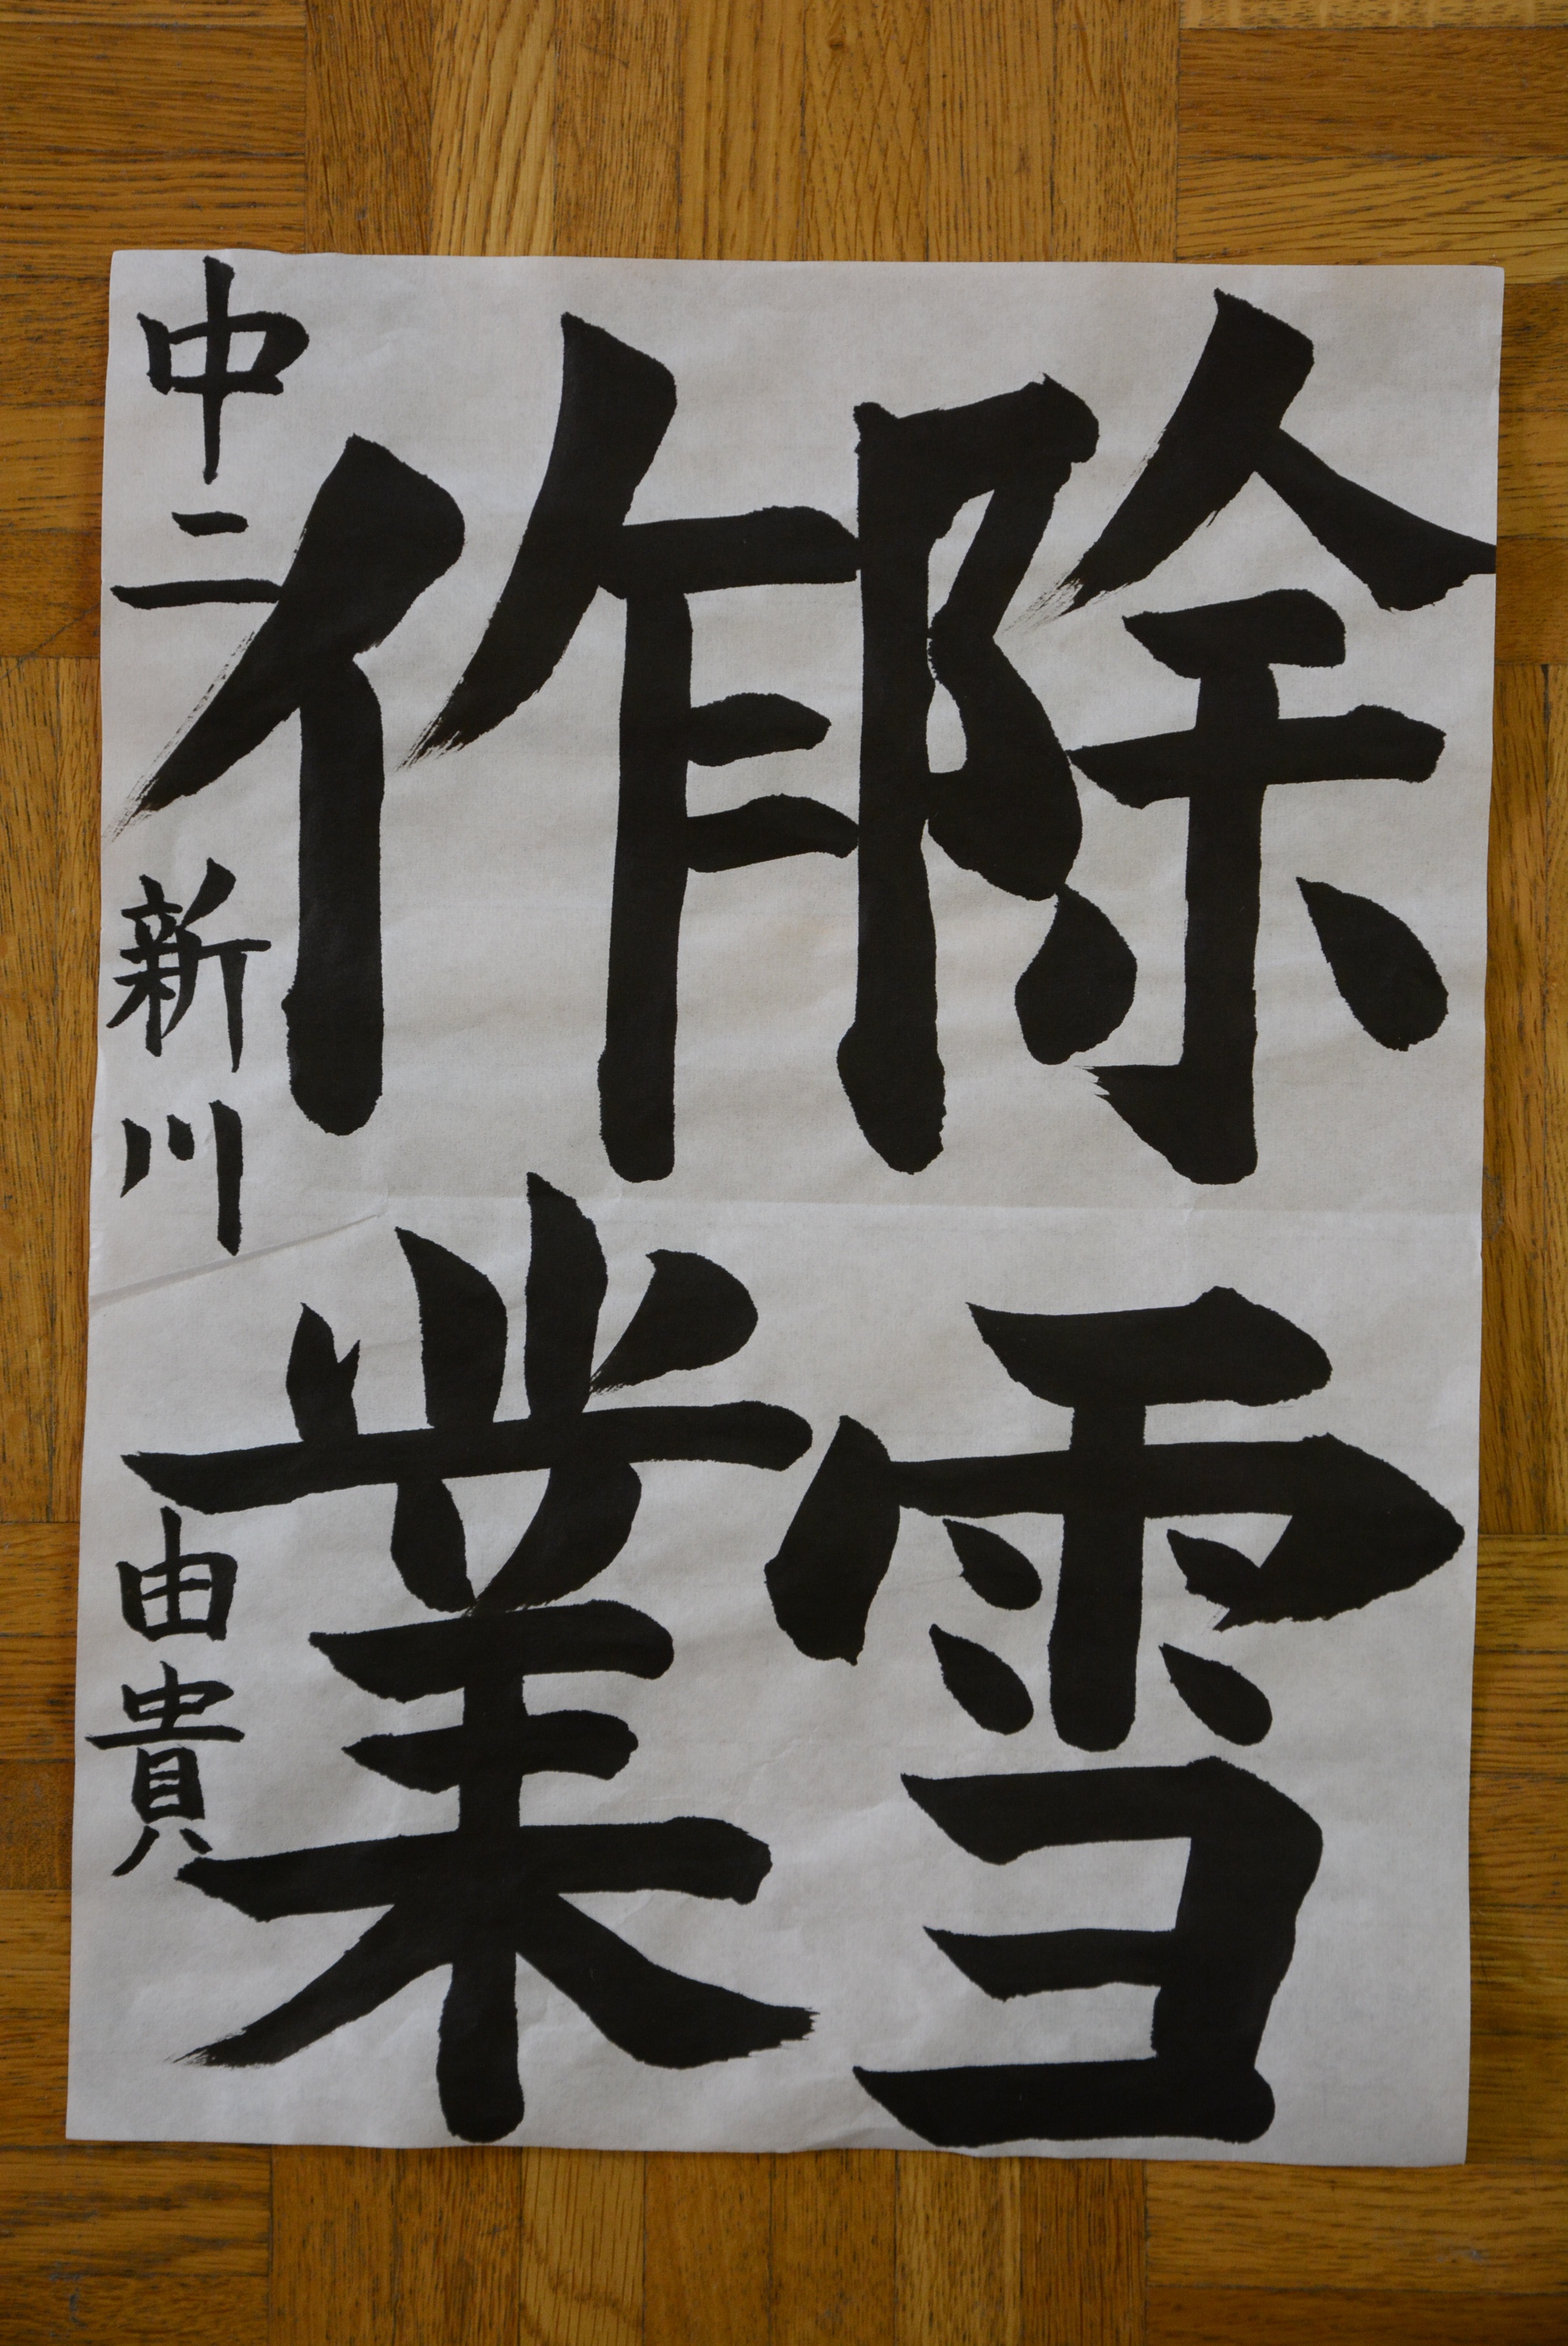 除雪
作業
中二 新川 由貴